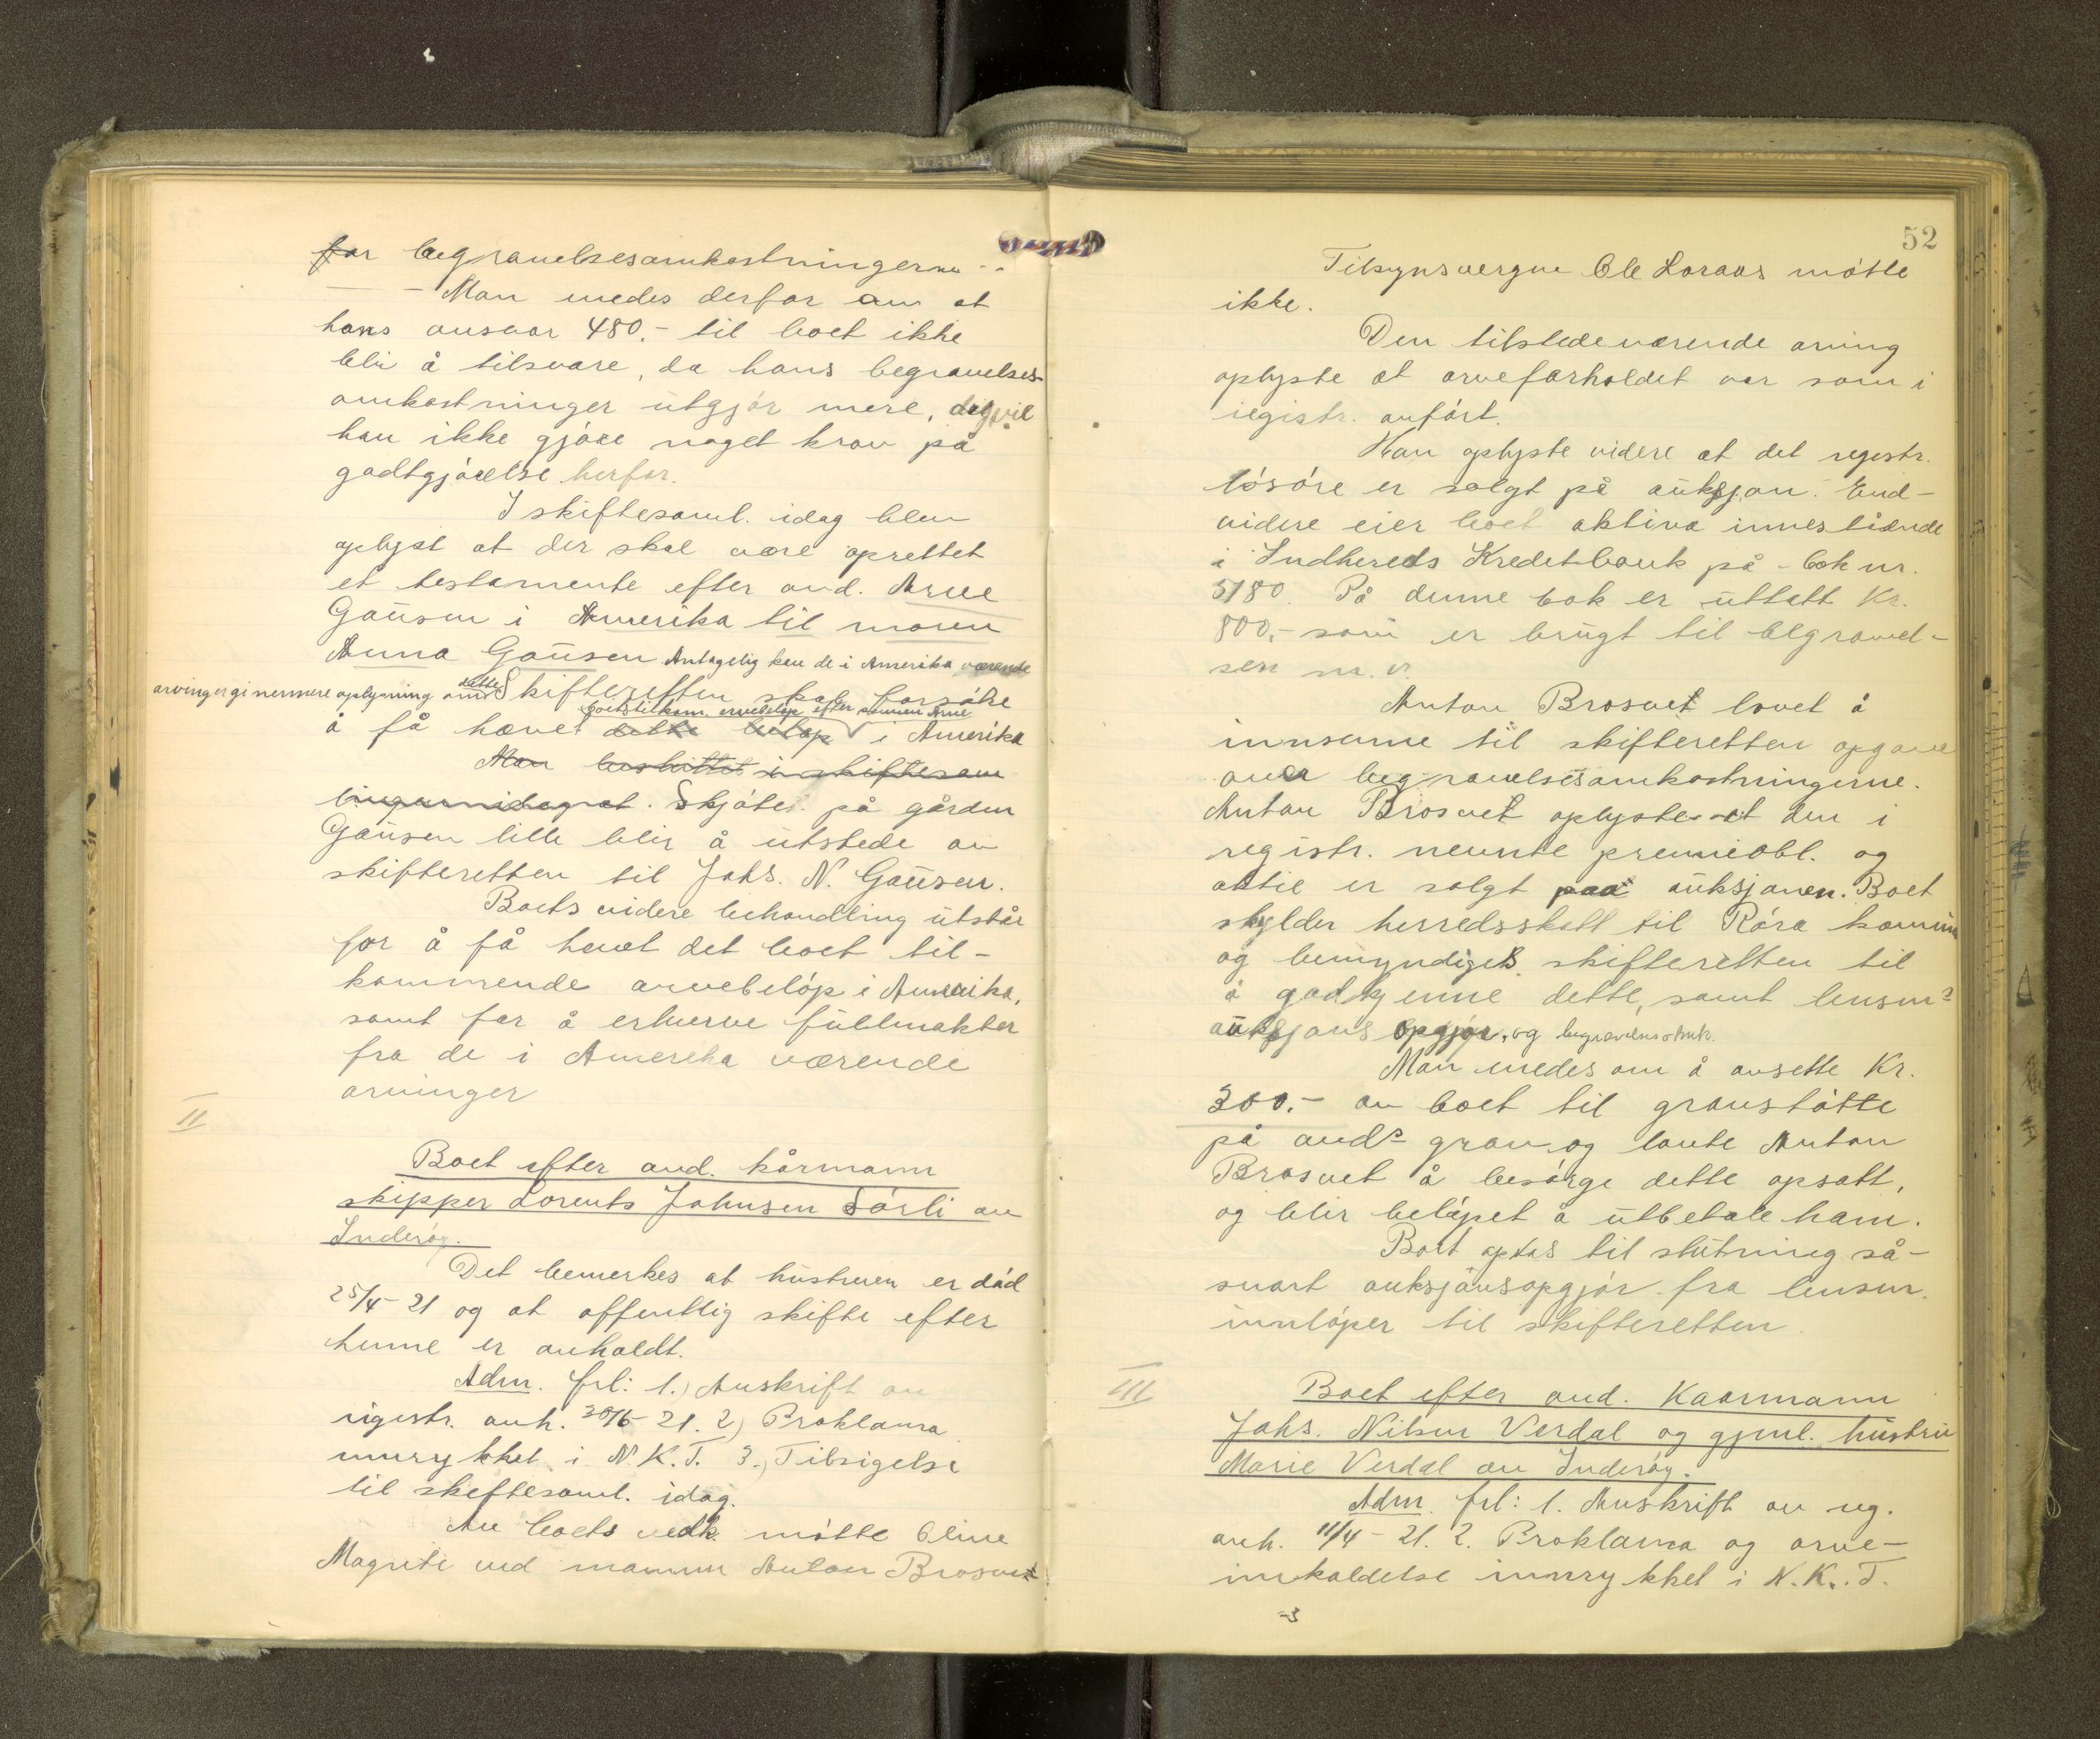 for begravelsesomkostningerne..
- Man enedes derfor om at
hans ansvar 480.- til boet ikke
blir å tilsvare, da hans begravelses-
omkostninger utgjør mere, dog vil
han ikke gjøre noget krav på
godtgjørelse herfor.
I skiftesaml. idag blev
oplyst at der skal være oprettet
et testamente efter avd. Arne
Gausen i Amerika til moren
Anna Gausen Antagelig kan de i Amerika værende
arvinger gi nermere oplysning om dette Skifteretten skal forsøke
boets tilkom. arvebeløp efter sønnen Arne
å få hævet dette beløp i Amerika
Man besluttet i skiftesam
lingen idag at. Skjøte på gården
Gausen lille blir å utstede av
skifteretten til Johs. N. Gausen.
Boets videre behandling utstår
for å få hævet det boet til-
kommende arvebeløp i Amerika,
samt for å erhverve fullmakter
fra de i Amerika værende
arvinger
II
Boet efter avd. kårmann
skipper Lorents Johnsen Sørli av
Inderøy.
Det bemerkes at hustruen er død
25/4-21 og at offentlig skifte efter
henne er anholdt.
Adm. frl: 1.) Avskrift av
registr. avh. 30/6-21. 2) Proklama
innrykket i N.K.T. 3.) Tilsigelse
til skiftesaml. idag.
Av boets vedk. møtte Oline
Magrete ved mannen Anton Brosvet
52
Tilsynsvergen Ole Loraas møtte
ikke.
Den tilstedeværende arving
oplyste at arveforholdet var som i
registr. anført.
Han oplyste videre at det registr.
løsøre er solgt på auksjon. End-
videre eier boet aktiva innestående
i Indhereds Kreditbank på - bok nr.
5180 På denne bok er uttatt Kr.
800,- som er brugt til begravel-
sen m.v.
Anton Brosvet lovet å
innsenne til skifteretten opgave
over begravelsesomkostningerne.
Anton Brosvet oplyste at den i
registr. nevnte premieobl. og
aktie er solgt paa auksjonen. Boet
skylder herredsskatt til Røra kommune
og bemyndiges skifteretten til
å godkjenne dette, samt lensm.s
auksjons opgjør, og begravelsesomk.
Man enedes om å avsette Kr.
300.- av boet til gravstøtte
på avds grav og lovte Anton
Brosvet å besørge dette opsatt,
og blir beløpet å utbetale ham.
Boet optas til slutning så-
snart auksjonsopgjør fra lensm.
innløper til skifteretten.
III
Boet efter avd. Kaarmann
Johs. Nilsen Verdal og gjenl. hustru
Marie Verdal av Inderøy.
Adm. frl: 1. Avskrift av reg.
avh. 11/4-21. 2. Proklama og arve-
innkaldelse innrykket i N.K.T.
-3